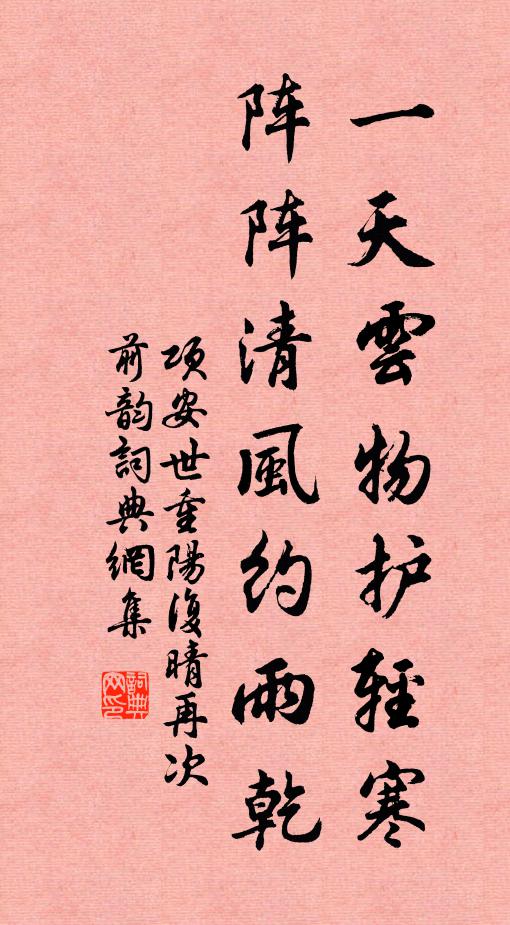 一天雲物护輕寒
阵阵清風约雨乾
项安世重陽復晴再次
前韵詞典網集
詞典網印